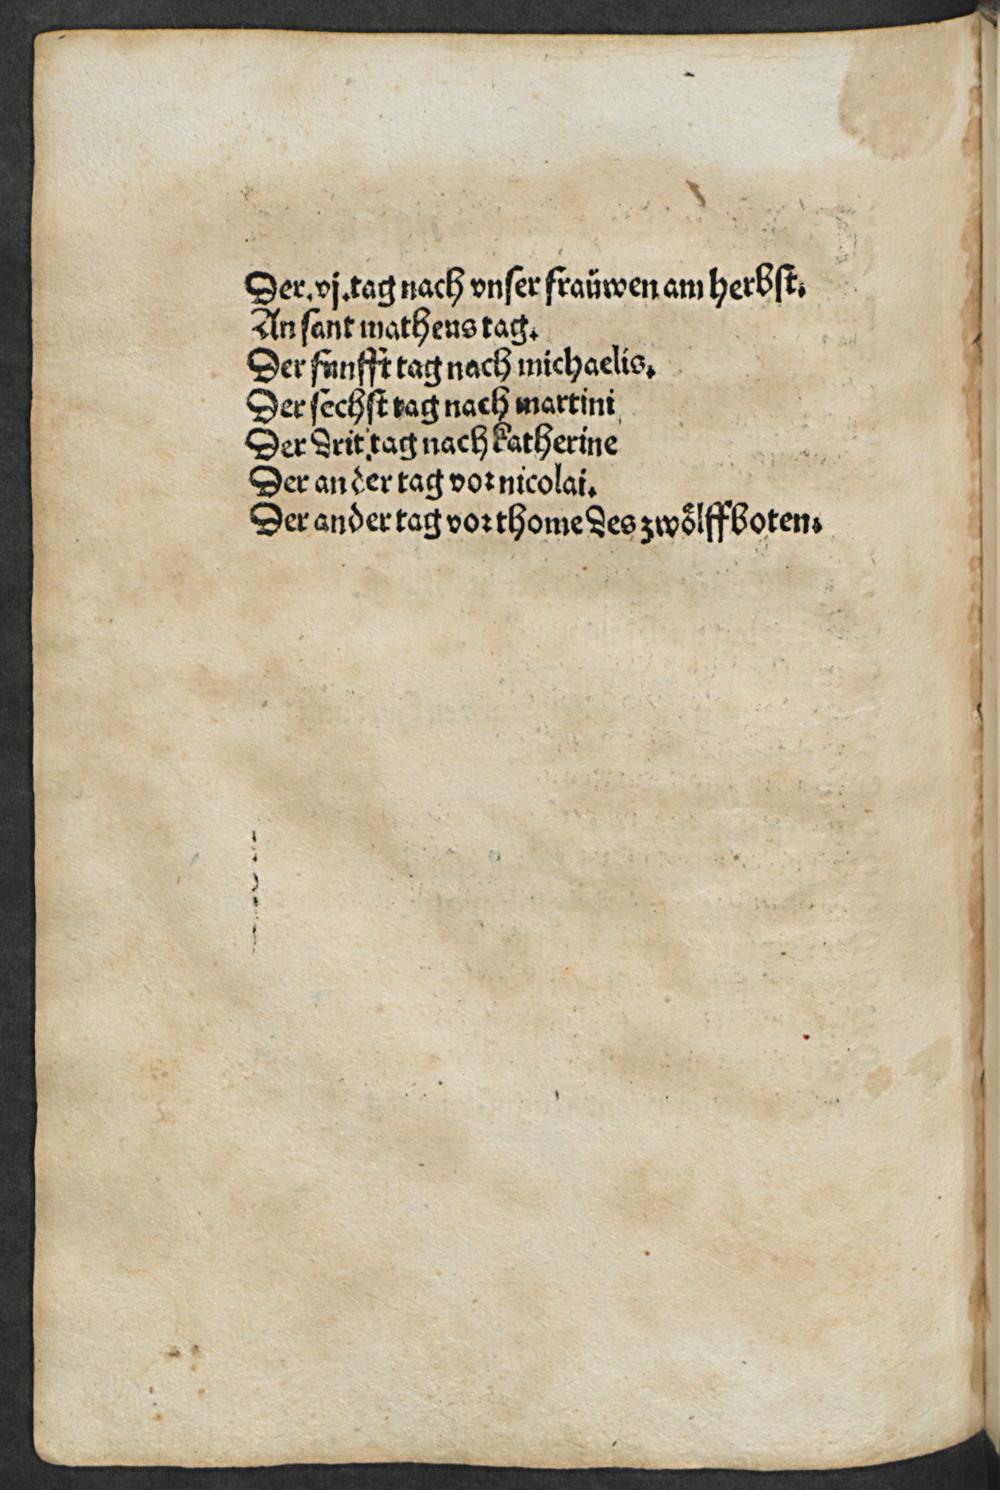 Der .vj. tag nach vnser fraůwen am herbst.
An sant matheus tag.
Der funfft tag nach michaelis.
Der sechst tag nach martini
Der drit tag nach katherine
Der ander tag vor nicolai.
Der ander tag vor thome des zwoͤlffboten.